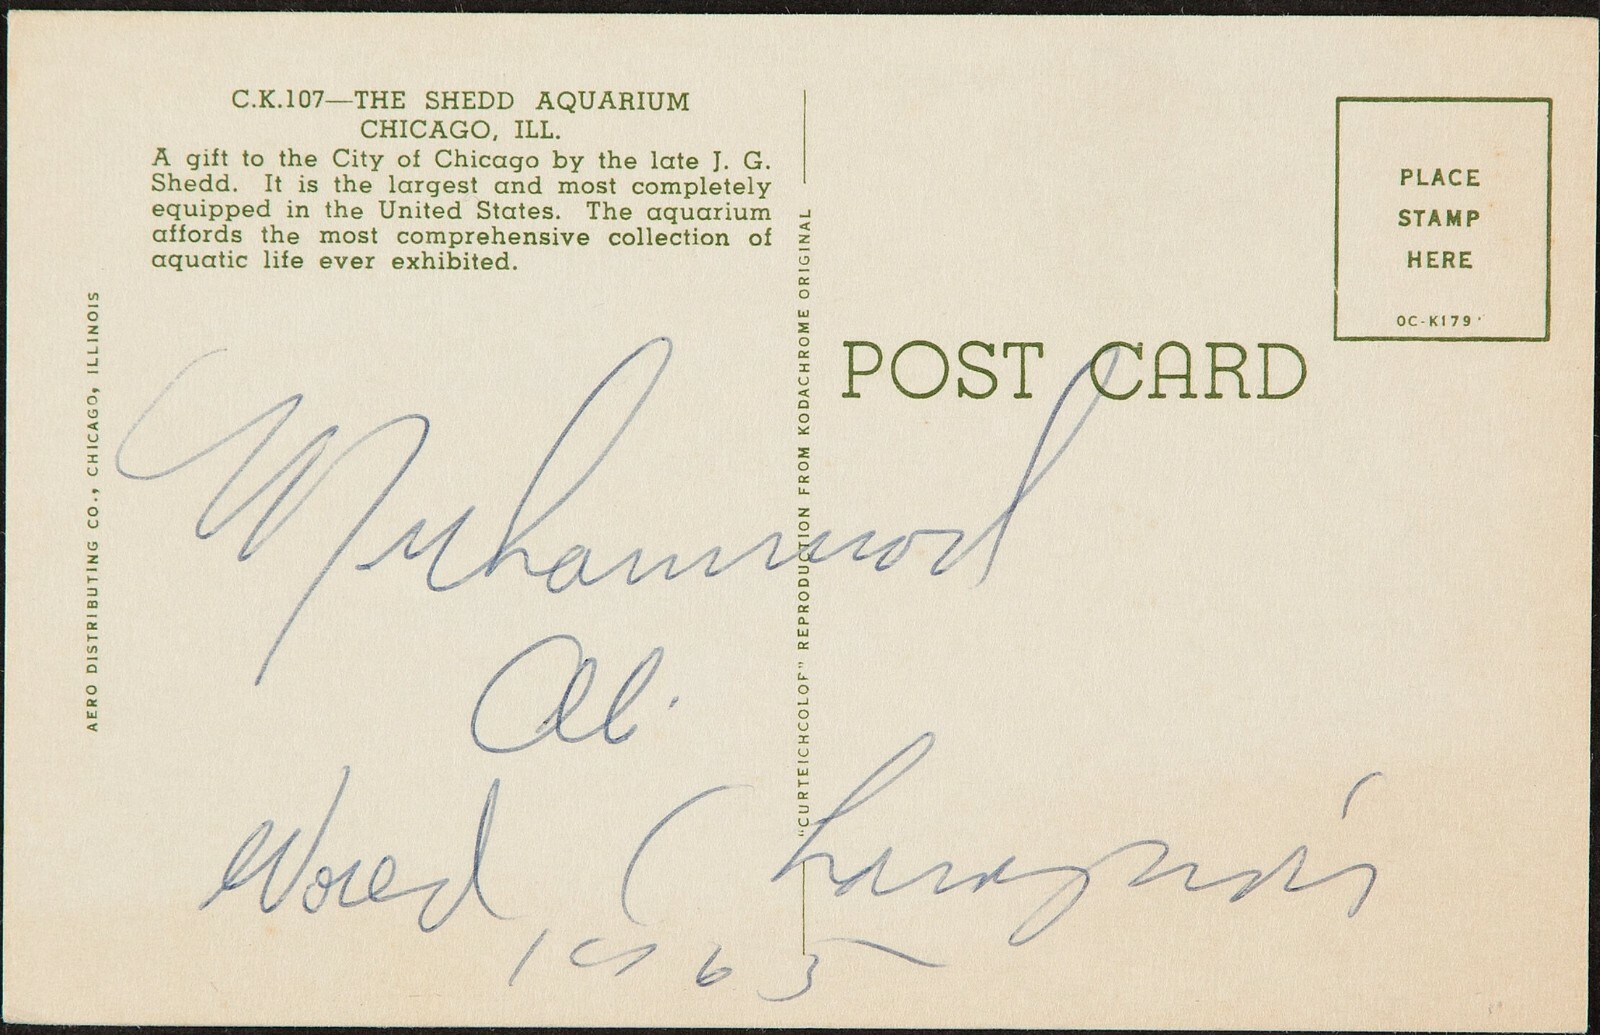 C.K.107—THE SHEDD AQUARIUM
CHICAGO, ILL.
A gift to the City of Chicago by the late J. G.
Shedd. It is the largest and most completely
equipped in the United States. The aquarium
affords the most comprehensive collection of
aquatic life ever exhibited.
AERO DISTRIBUTING CO., CHICAGO, ILLINOIS
"CURTEICHCOLOR" REPRODUCTION FROM KODACHROME ORIGINAL
PLACE
STAMP
HERE
OC-K179
POST CARD
Muhammad
Ali
World Champion
1965